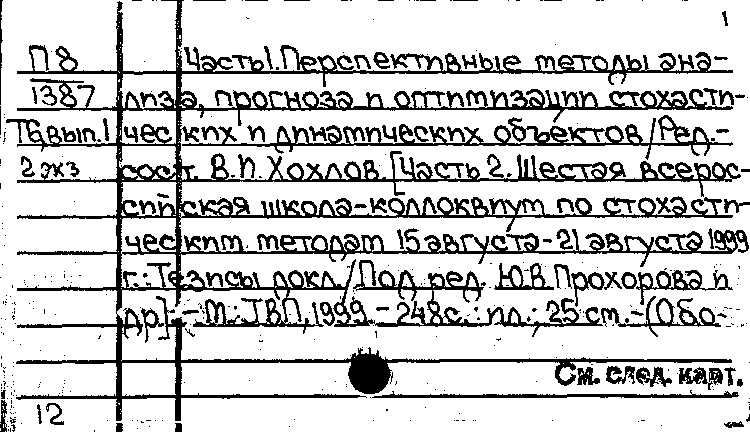 1
П 8 Часть 1. Перспективные методы ана-
1387 лиза, прогноза и оптимизации стохасти-
Т6, вып. 1 ческих и динамических объектов / Ред.-
2 экз сост. В.И. Хохлов. [Часть 2. Шестая всерос-
сийская школа-коллоквиум по стохасти-
ческим методам 15 августа - 21 августа 1999
г.: Тезисы докл. / Под ред. Ю.В. Прохорова и
др.]. - М.: ТВП, 1999. - 248с.: ил.; 25 см. - (Обо-
См. след. карт.
12